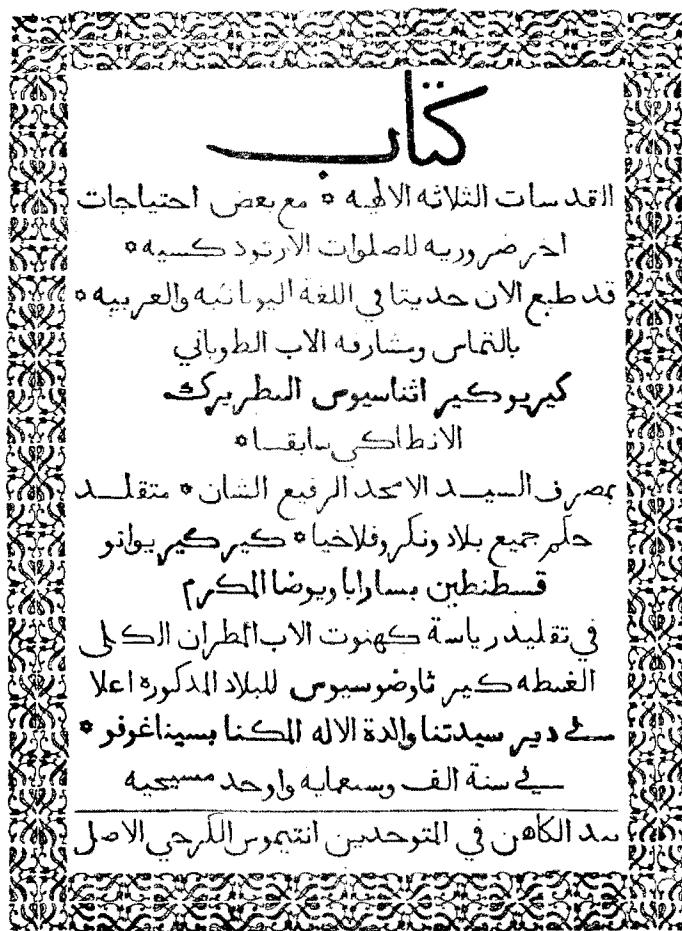 كتاب
القدسات الثلاثه الالهيه * مع بعض احتياجات
اخر ضروريه للصلوات الارتودكسيه *
قد طبع الان حديتا في اللغة اليونانيه والعربيه *
بالتماس ومشارفه الاب الطوباني
كيريو كير اثناسيوس البطريرك
الانطاكي سابقا *
بمصرف السيد الامجد الرفيع الشان * متقلد
حكم جميع بلاد ونكروفلاخيا * كير كير يوانو
قسطنطين بسارابا ويوضا المكرم
في تقليد رياسة كهنوت الاب المطران الكلي
الغبطه كير ثاوضوسيوس للبلاد المذكورة اعلا
في دير سيدتنا والدة الاله المكنا بسيناغوفو *
في سنة الف وسبعمايه واوحد مسيحيه
بيد الكاهن في المتوحدين انتيموس الكرجي الاصل